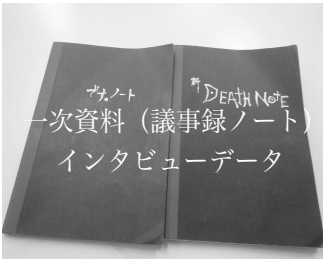 ブナノート
新 DEATH NOTE
一次資料（議事録ノート）
インタビューデータ